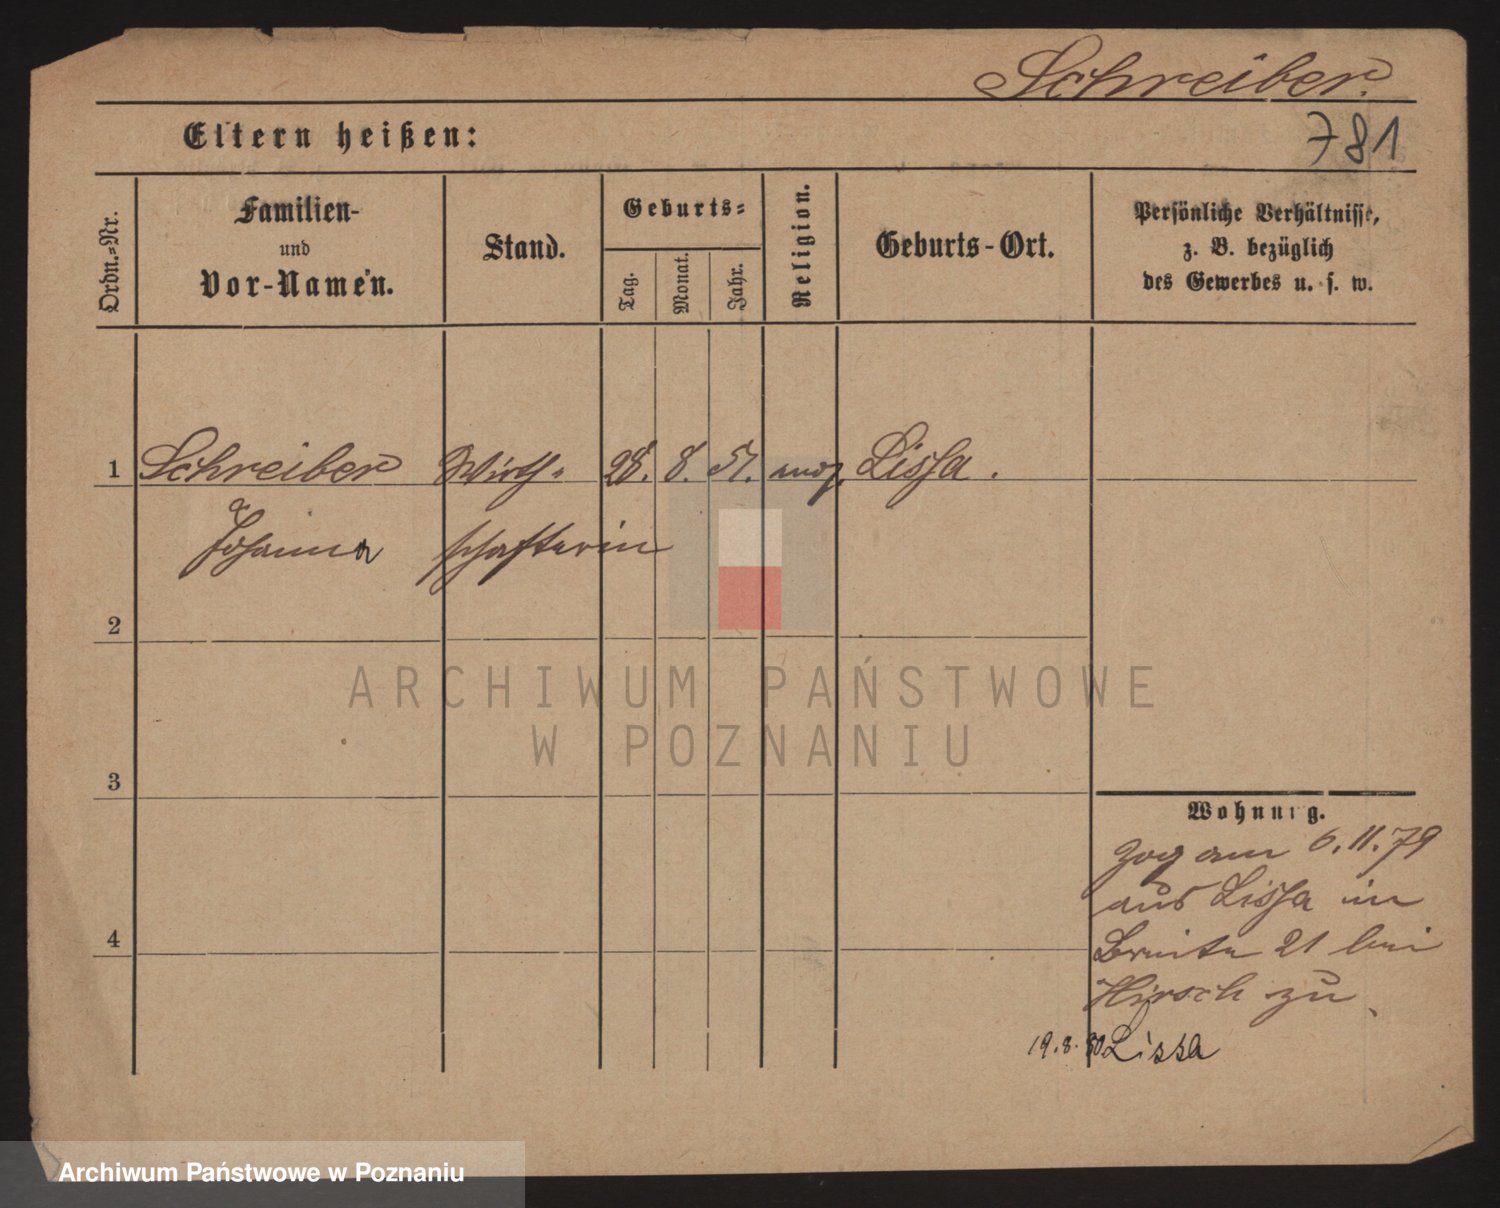 Schreiber.
Eltern heißen:
781
Ordn.-Nr.
Familien-
und
Vor-Namen.
Stand.
Geburts-
Tag.
Monat.
Jahr.
Religion.
Geburts-Ort.
Persönliche Verhältnisse,
z. B. bezüglich
des Gewerbes u. s. w.
1 Schreiber Wirth- 28. 8. 51. Lissa.
Johanna schafterin
2
3
4
Wohnung.
Zog am 6.11.79
aus Lissa in
Breite 21 bei
Hirsch zu
19.8.80 Lissa
ARCHIWUM PAŃSTWOWE
W POZNANIU
Archiwum Państwowe w Poznaniu